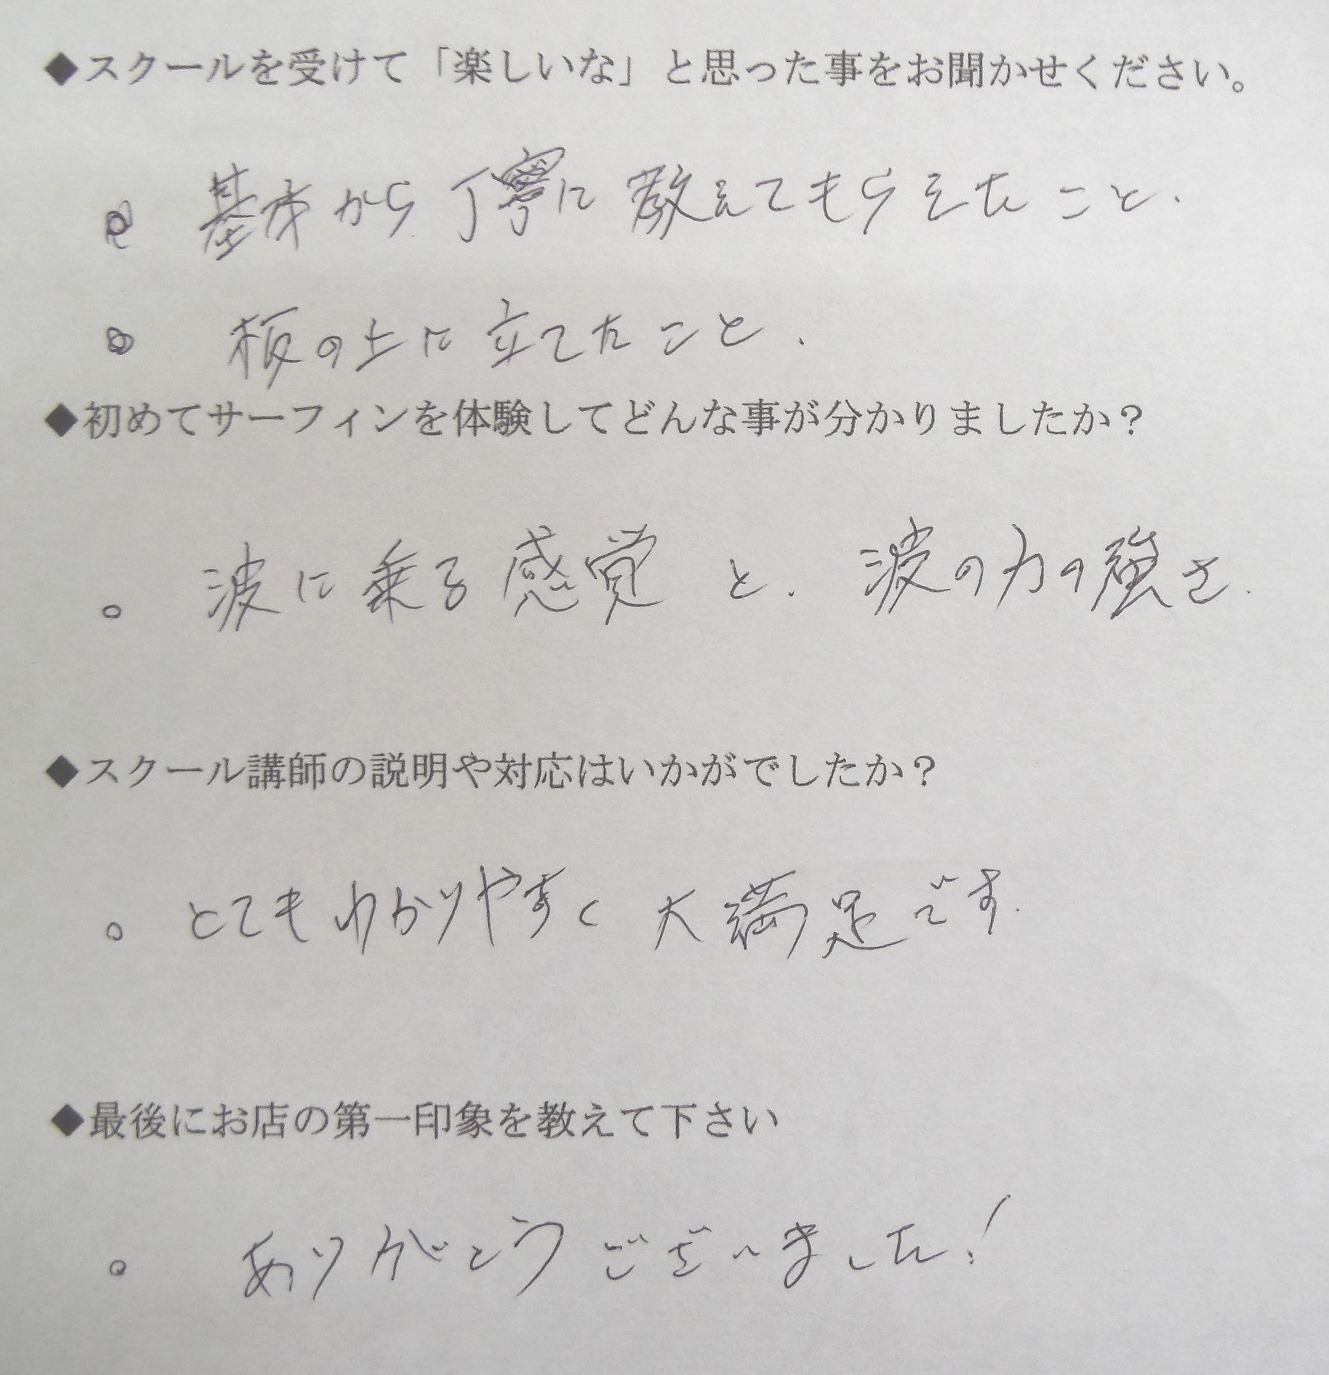 ◆スクールを受けて「楽しいな」と思った事をお聞かせください。
。基本から丁寧に教えてもらえたこと.
。板の上に立てたこと.
◆初めてサーフィンを体験してどんな事が分かりましたか？
。波に乗る感覚と、波の力の強さ.
◆スクール講師の説明や対応はいかがでしたか？
。とてもわかりやすく大満足です.
◆最後にお店の第一印象を教えて下さい
。ありがとうございました!